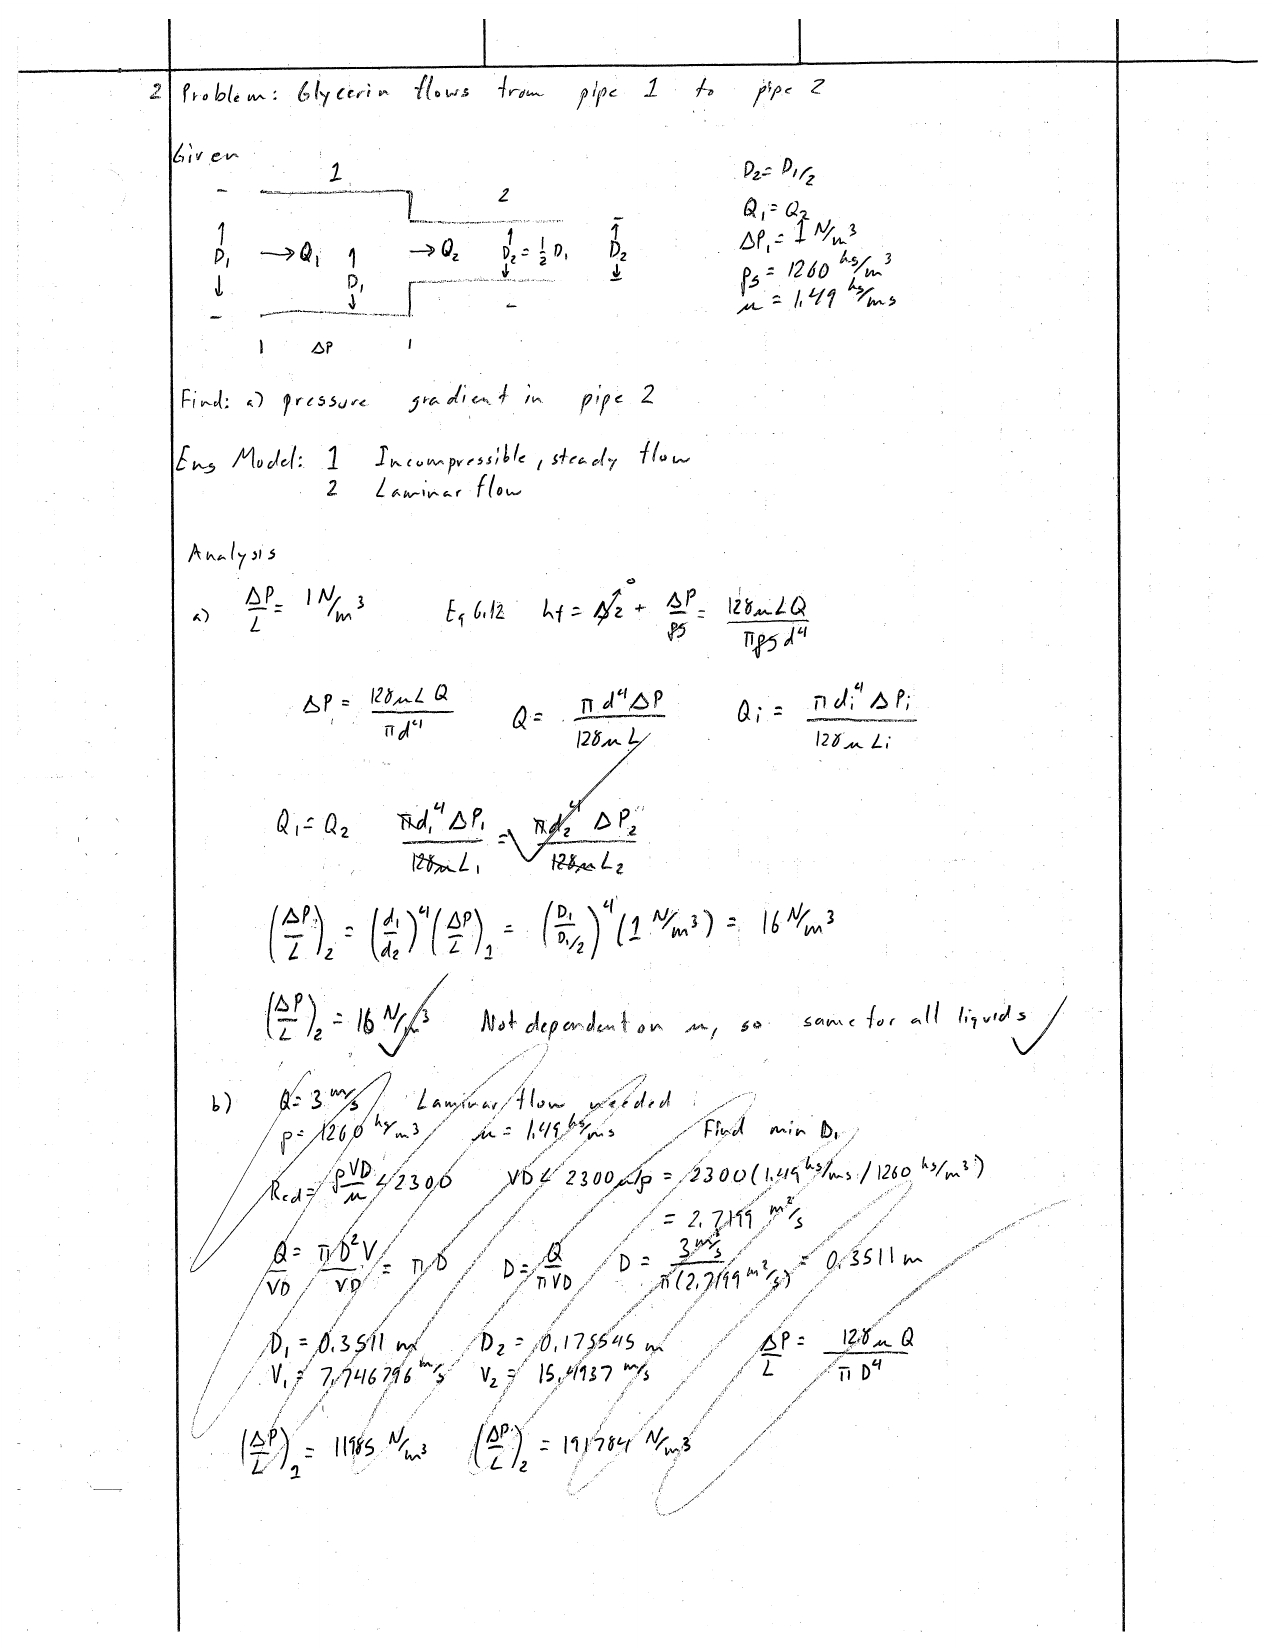 2 Problem: Glycerin flows from pipe 1 to pipe 2
Given
1
2
D₁ → Q₁ D₁ → Q₂ D₂ = ½ D₁ D₂
ΔP
D₂ = D₁/2
Q₁ = Q₂
ΔP₁ = 1 N/m³
ρg = 1260 kg/m³
μ = 1.49 kg/ms
Find: a) pressure gradient in pipe 2
Eng Model: 1 Incompressible, steady flow
2 Laminar flow
Analysis
a) ΔP/L = 1 N/m³ Eq 6.12 hf = Δz⁰ + ΔP/ρg = 128μLQ/πρg d⁴
ΔP = 128μLQ/πd⁴ Q = πd⁴ΔP/128μL Qi = πdi⁴ΔPi/128μLi
Q₁ = Q₂ πd₁⁴ΔP₁/128μL₁ = πd₂⁴ΔP₂/128μL₂
(ΔP/L)₂ = (d₁/d₂)⁴ (ΔP/L)₁ = (D₁/D₁/2)⁴ (1 N/m³) = 16 N/m³
(ΔP/L)₂ = 16 N/m³ Not dependent on μ, so same for all liquids
b) Q = 3 m³/s Laminar flow needed
ρ = 1260 kg/m³ μ = 1.49 kg/ms Find min D₁
Red = ρVD/μ < 2300 VD < 2300 μ/ρ = 2300 (1.49 kg/ms / 1260 kg/m³)
= 2.7199 m²/s
Q/VD = πD²V/VD = πD D = Q/πVD D = 3 m³/s/π(2.7199 m²/s) = 0.3511 m
D₁ = 0.3511 m D₂ = 0.175545 m ΔP/L = 128μQ/πD⁴
V₁ = 7.746796 m/s V₂ = 15.4937 m/s
(ΔP/L)₁ = 11985 N/m³ (ΔP/L)₂ = 191784 N/m³